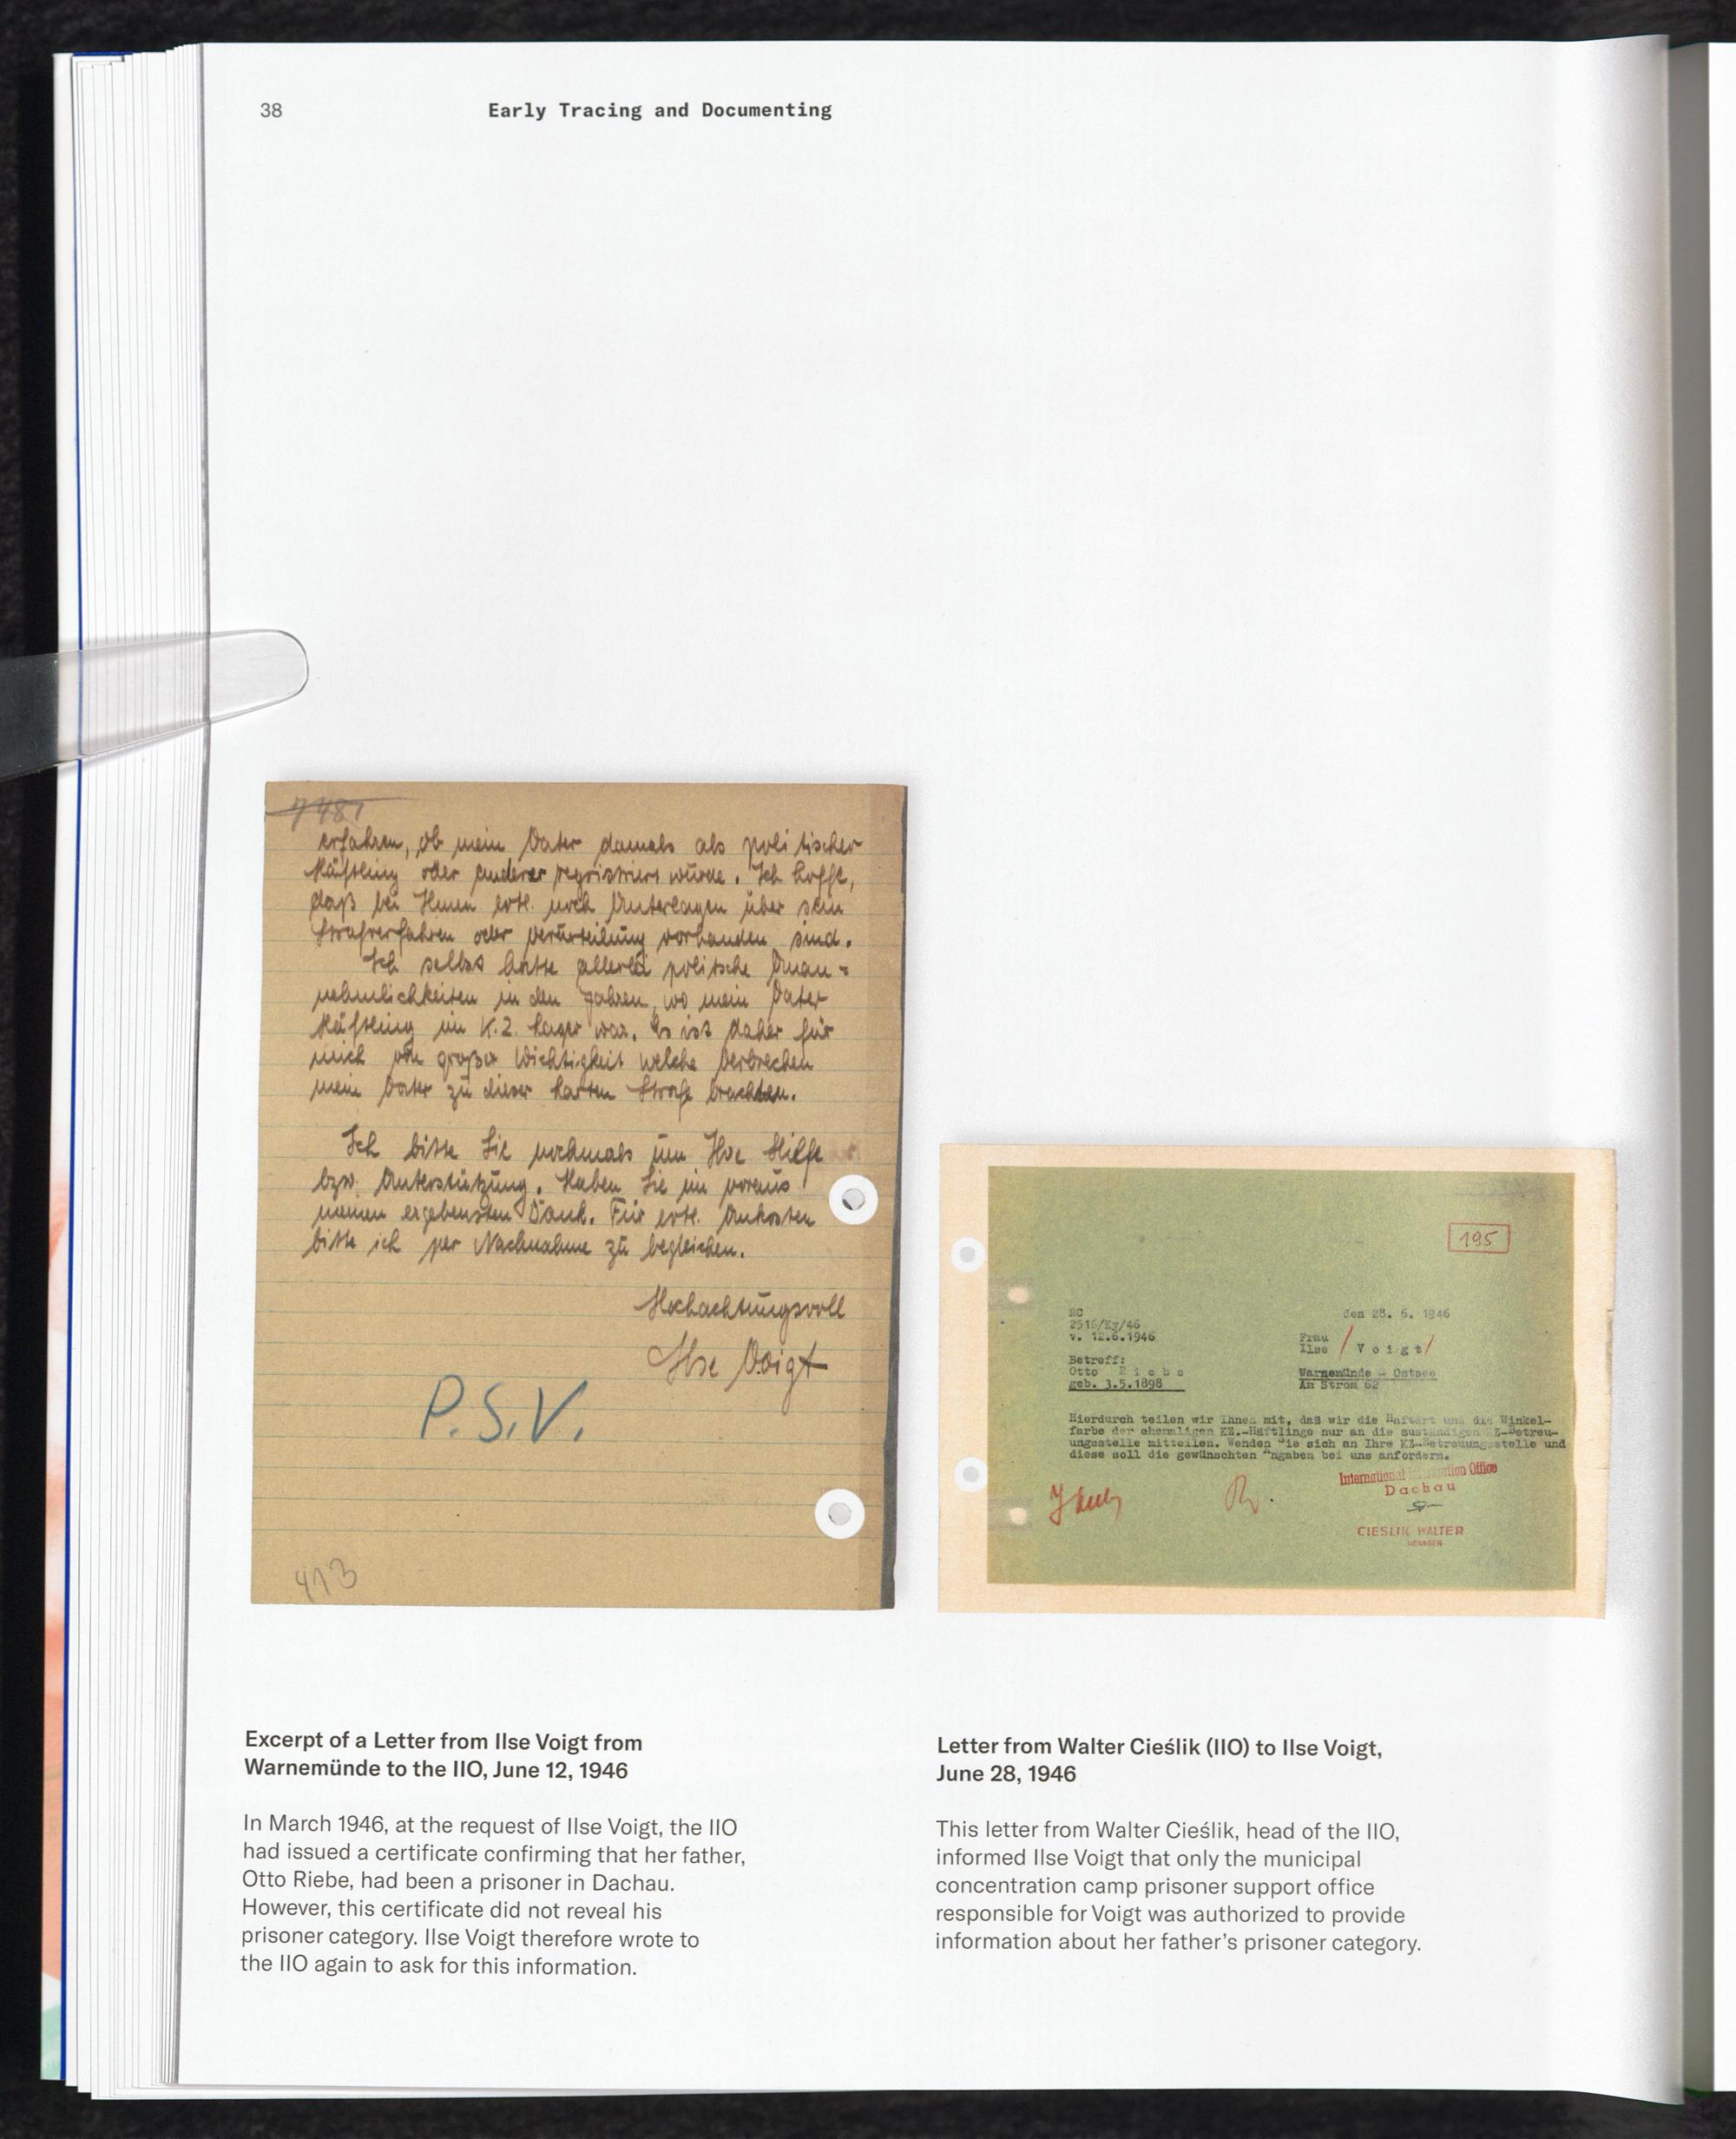 38
Early Tracing and Documenting
7481
erfahren, ob mein Vater damals als politischer
Häftling oder anderer registriert wurde. Ich hoffe,
daß bei Ihnen evtl. noch Unterlagen über sein
Strafverfahren oder Verurteilung vorhanden sind.
Ich selbst hatte allerlei politische Unan=
nehmlichkeiten in den Jahren, wo mein Vater
Häftling im K.Z. Lager war. Es ist daher für
mich von großer Wichtigkeit welche Verbrechen
mein Vater zu dieser harten Strafe brachten.
Ich bitte Sie nochmals um Ihre Hilfe
bzw. Unterstützung. Haben Sie im voraus
meinen ergebensten Dank. Für evtl. Unkosten
bitte ich per Nachnahme zu begleichen.
Hochachtungsvoll
Ilse Voigt
P.S.V.
413
195
RC
2516/Ky/46
v. 12.6.1946
den 28. 6. 1946
Frau
Ilse Voigt
Betreff:
Otto Riebe
geb. 3.5.1898
Warnemünde - Ostsee
Am Strom 62
Hierdurch teilen wir Ihnen mit, daß wir die Haftart und die Winkel-
farbe der ehemaligen KZ.-Häftlinge nur an die zuständigen KZ-Betreu-
ungsstelle mitteilen. Wenden Sie sich an Ihre KZ-Betreuungsstelle und
diese soll die gewünschten Angaben bei uns anfordern.
International Information Office
Dachau
CIESLIK WALTER
MENAGER
Excerpt of a Letter from Ilse Voigt from
Warnemünde to the IIO, June 12, 1946
In March 1946, at the request of Ilse Voigt, the IIO
had issued a certificate confirming that her father,
Otto Riebe, had been a prisoner in Dachau.
However, this certificate did not reveal his
prisoner category. Ilse Voigt therefore wrote to
the IIO again to ask for this information.
Letter from Walter Cieślik (IIO) to Ilse Voigt,
June 28, 1946
This letter from Walter Cieślik, head of the IIO,
informed Ilse Voigt that only the municipal
concentration camp prisoner support office
responsible for Voigt was authorized to provide
information about her father's prisoner category.